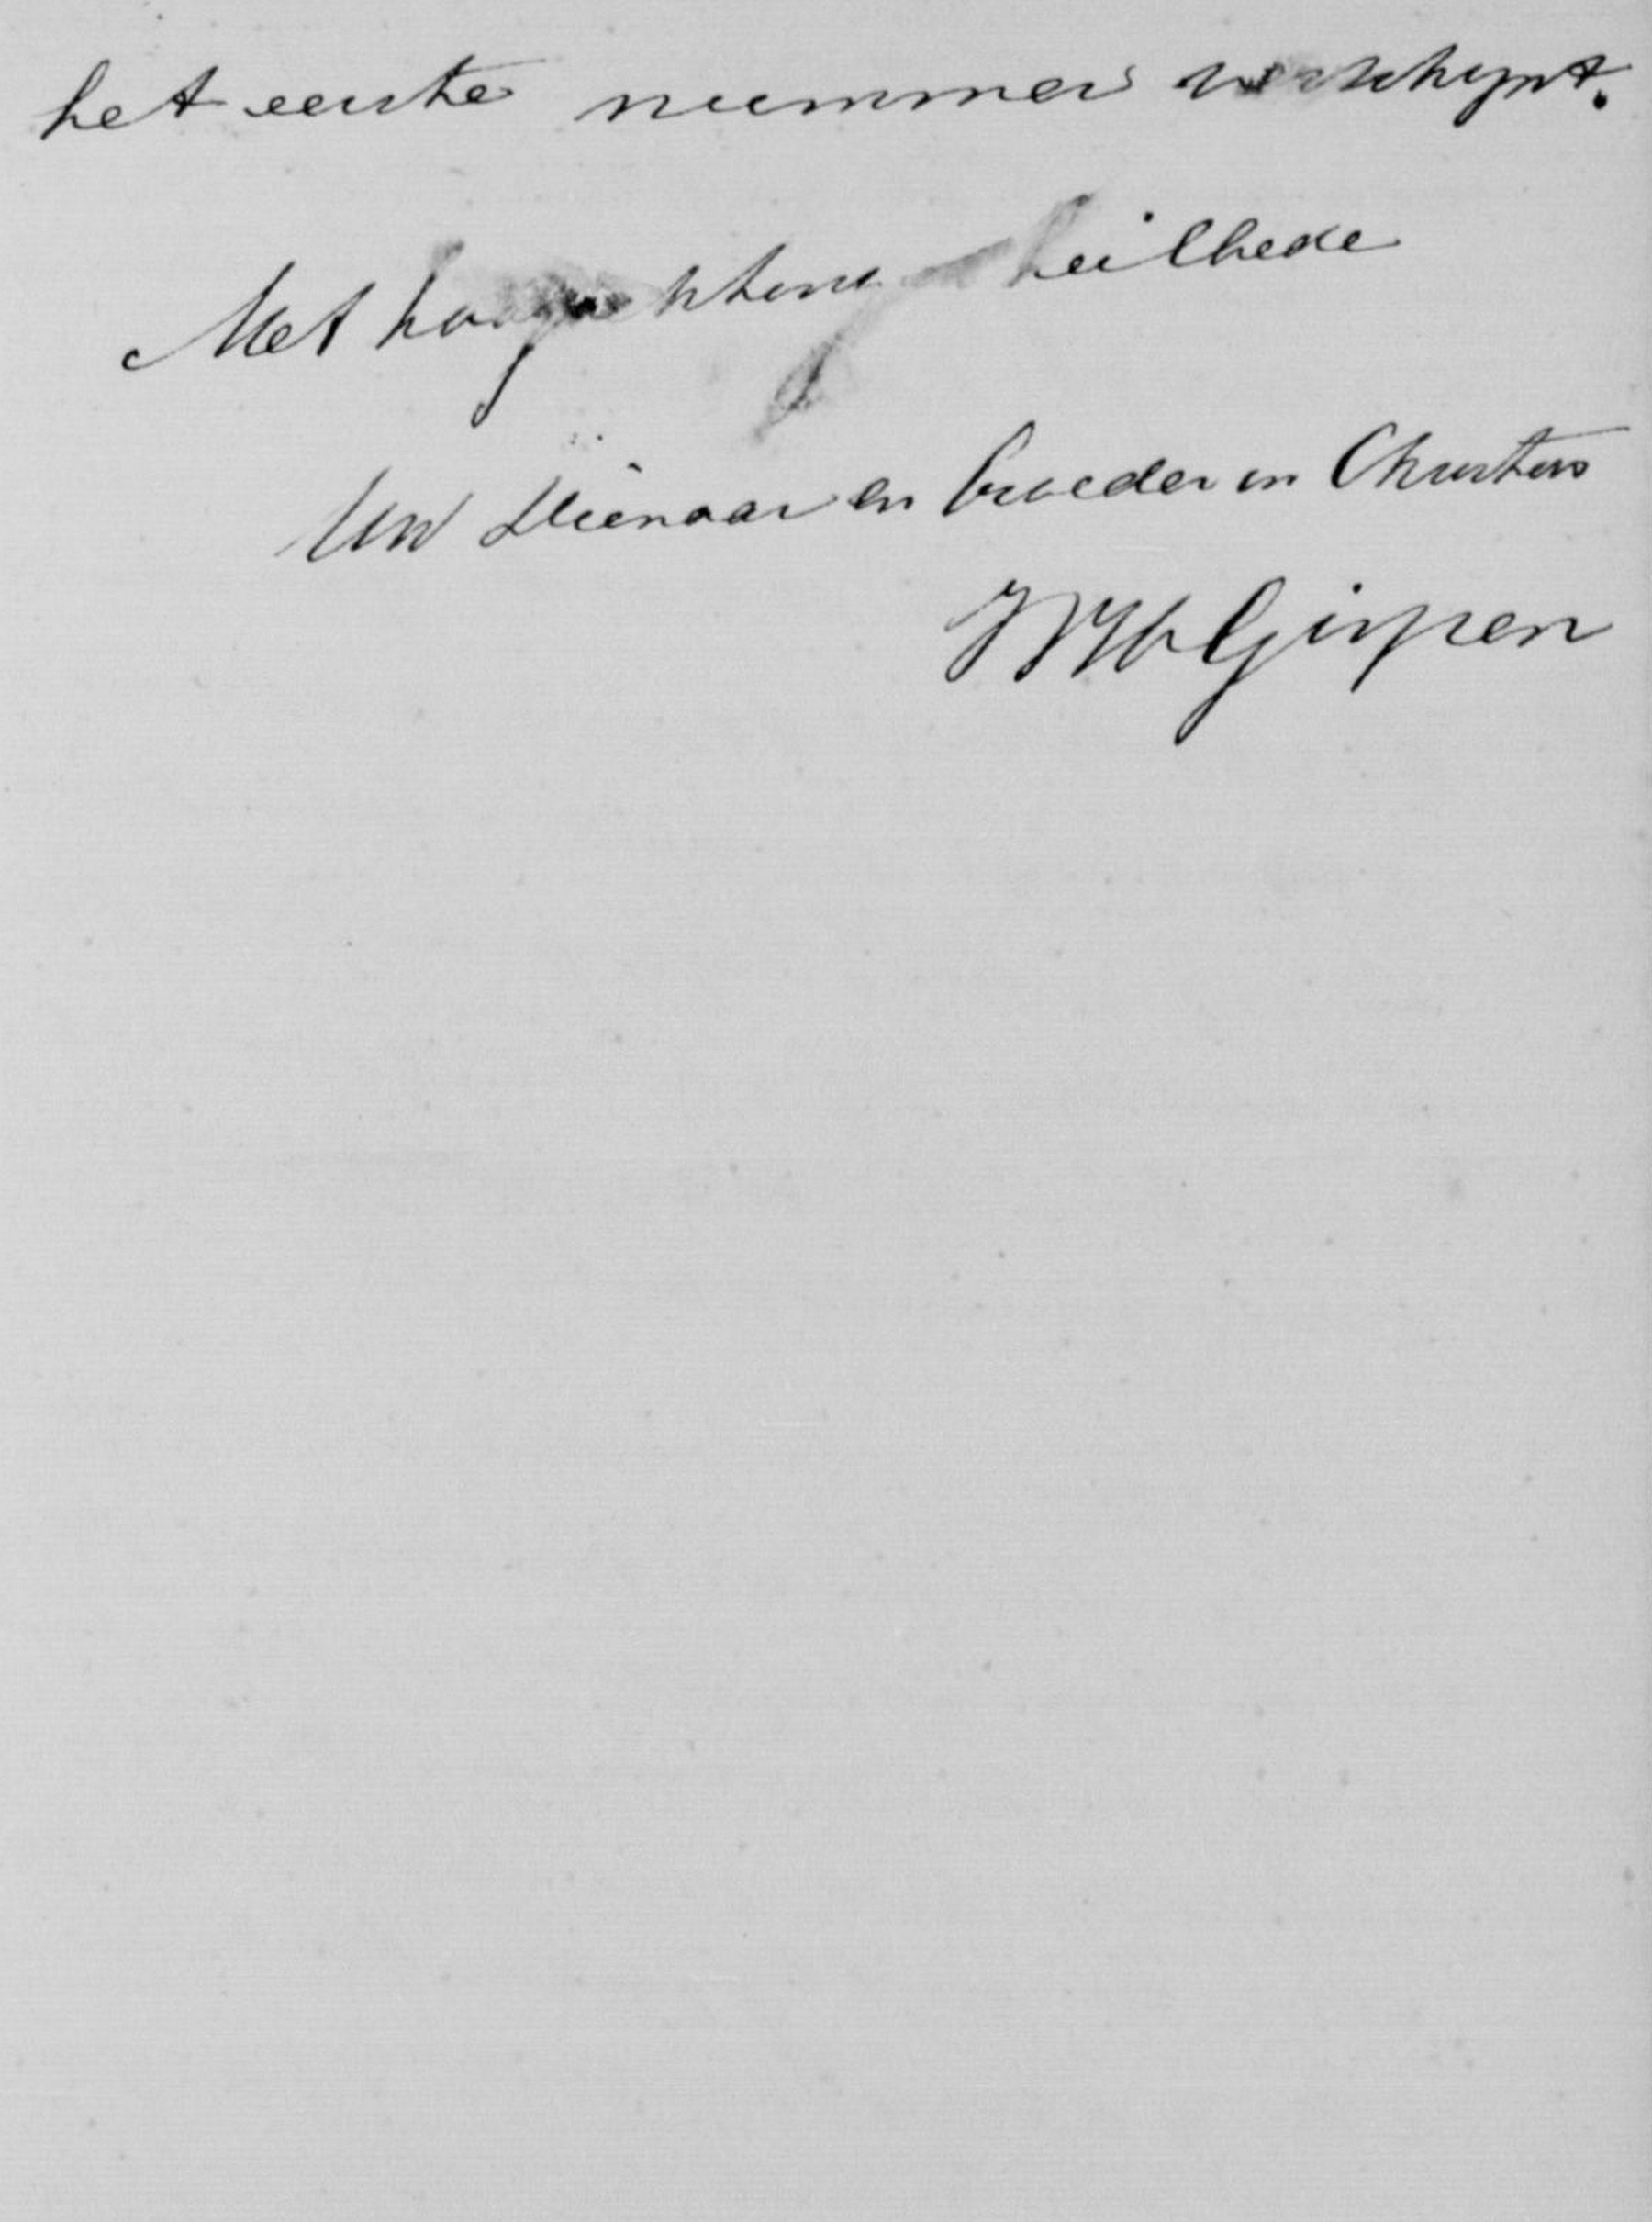 het eerste nummer verschynt.
Met hoogachting heilbede
Uw Dienaar en broeder in Christus
WHGispen